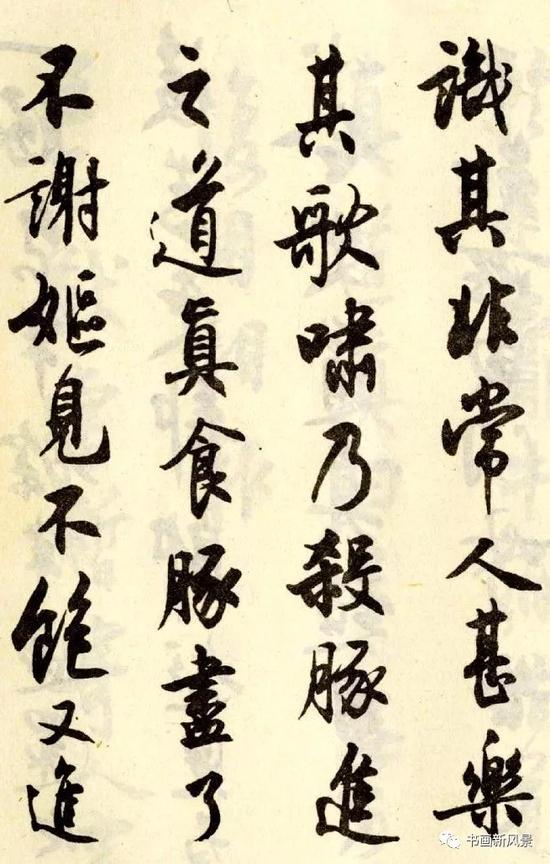 識其非常人甚樂
其歌嘯乃殺豚進
之道真食豚盡了
不謝嫗見不飽又進
书画新风景